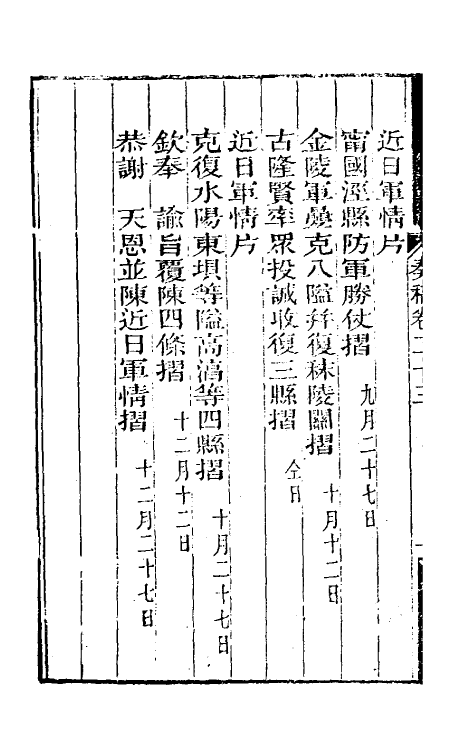 奏稿卷二十三
近日軍情片
甯國涇縣防軍勝仗摺 九月二十七日
金陵軍疊克八隘幷復秣陵關摺 十月十二日
古隆賢率眾投誠收復三縣摺 仝日
近日軍情片
克復水陽東壩等隘高湻等四縣摺 十月二十七日
欽奉 諭旨覆陳四條摺 十二月十二日
恭謝 天恩並陳近日軍情摺 十二月二十七日